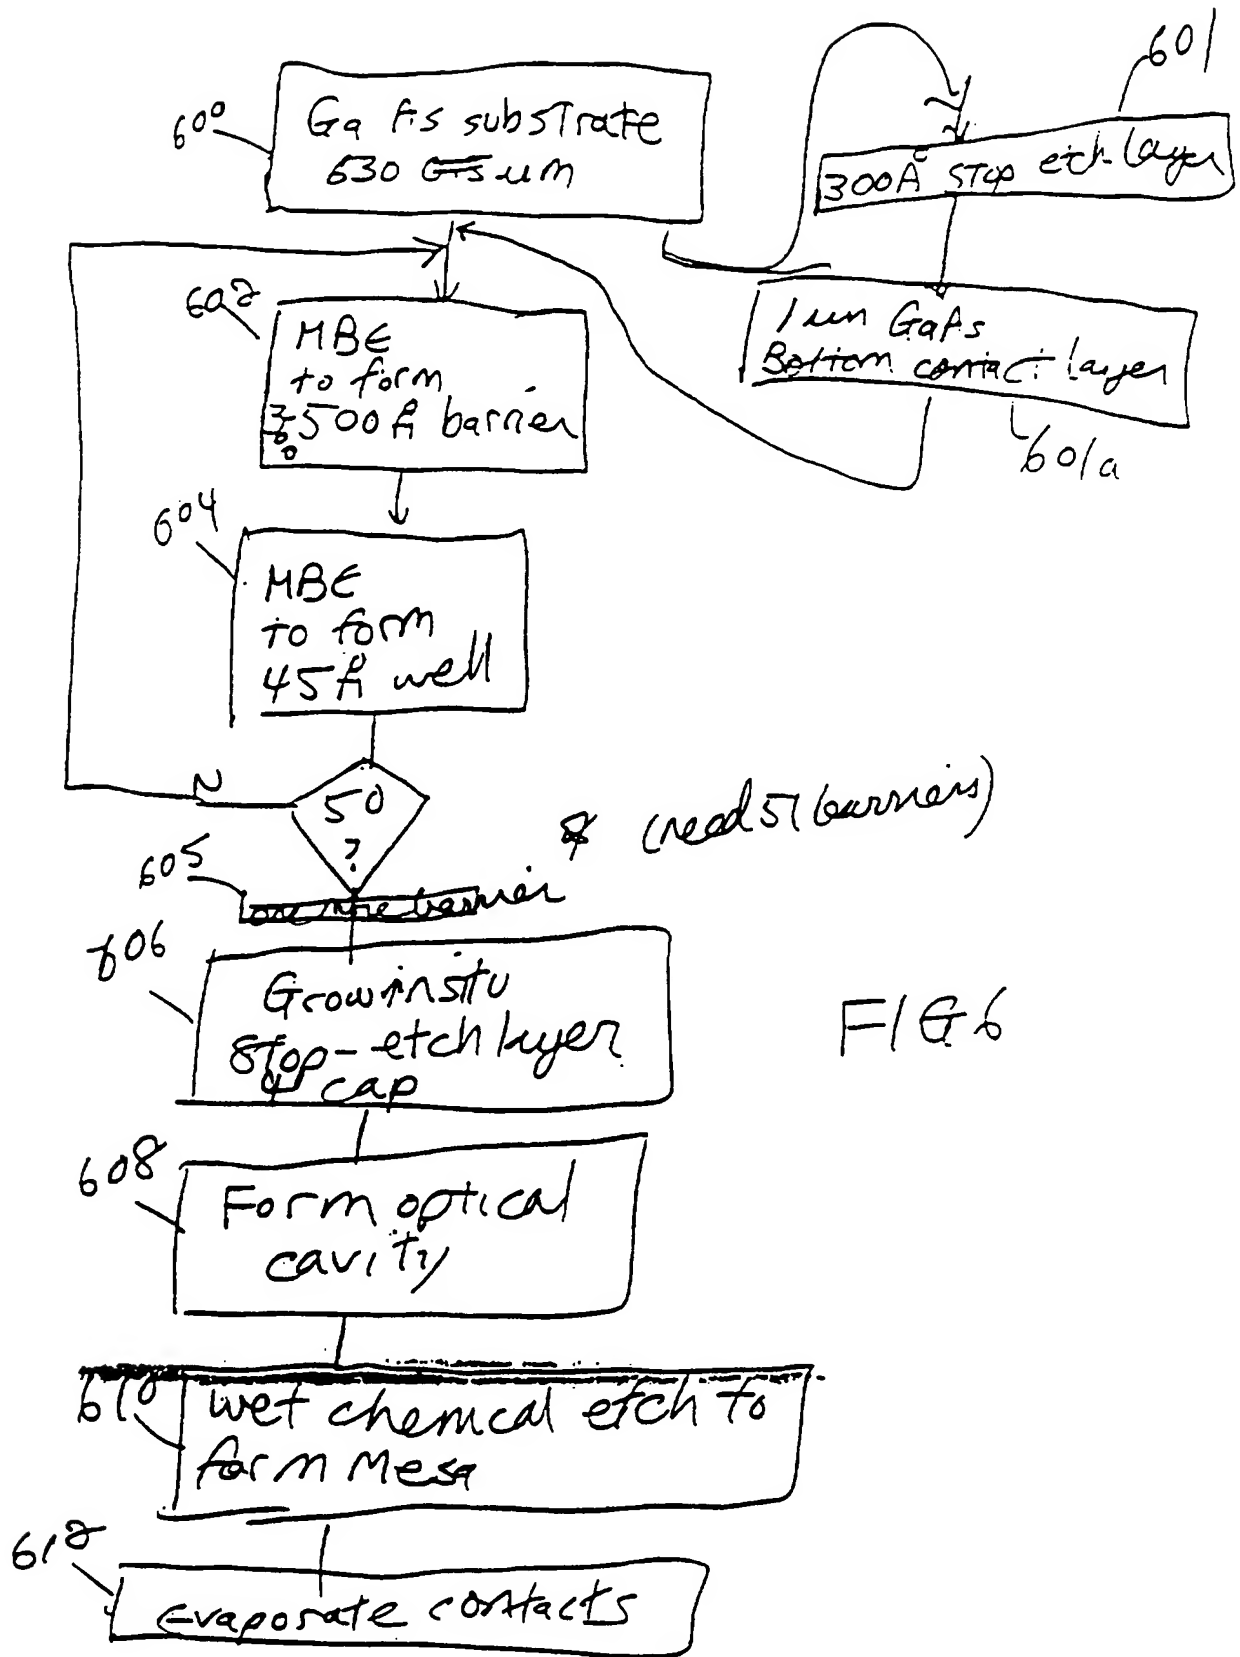 600
GaAs substrate
630 um
601
300Å stop etch layer
1 um GaAs
Bottom contact layer
601a
602
MBE
to form
500Å barrier
604
MBE
to form
45Å well
50
?
N
605
one more barrier
* (need 51 barriers)
606
Grow insitu
stop-etch layer
& cap
FIG 6
608
Form optical
cavity
610
wet chemical etch to
form Mesa
612
Evaporate contacts